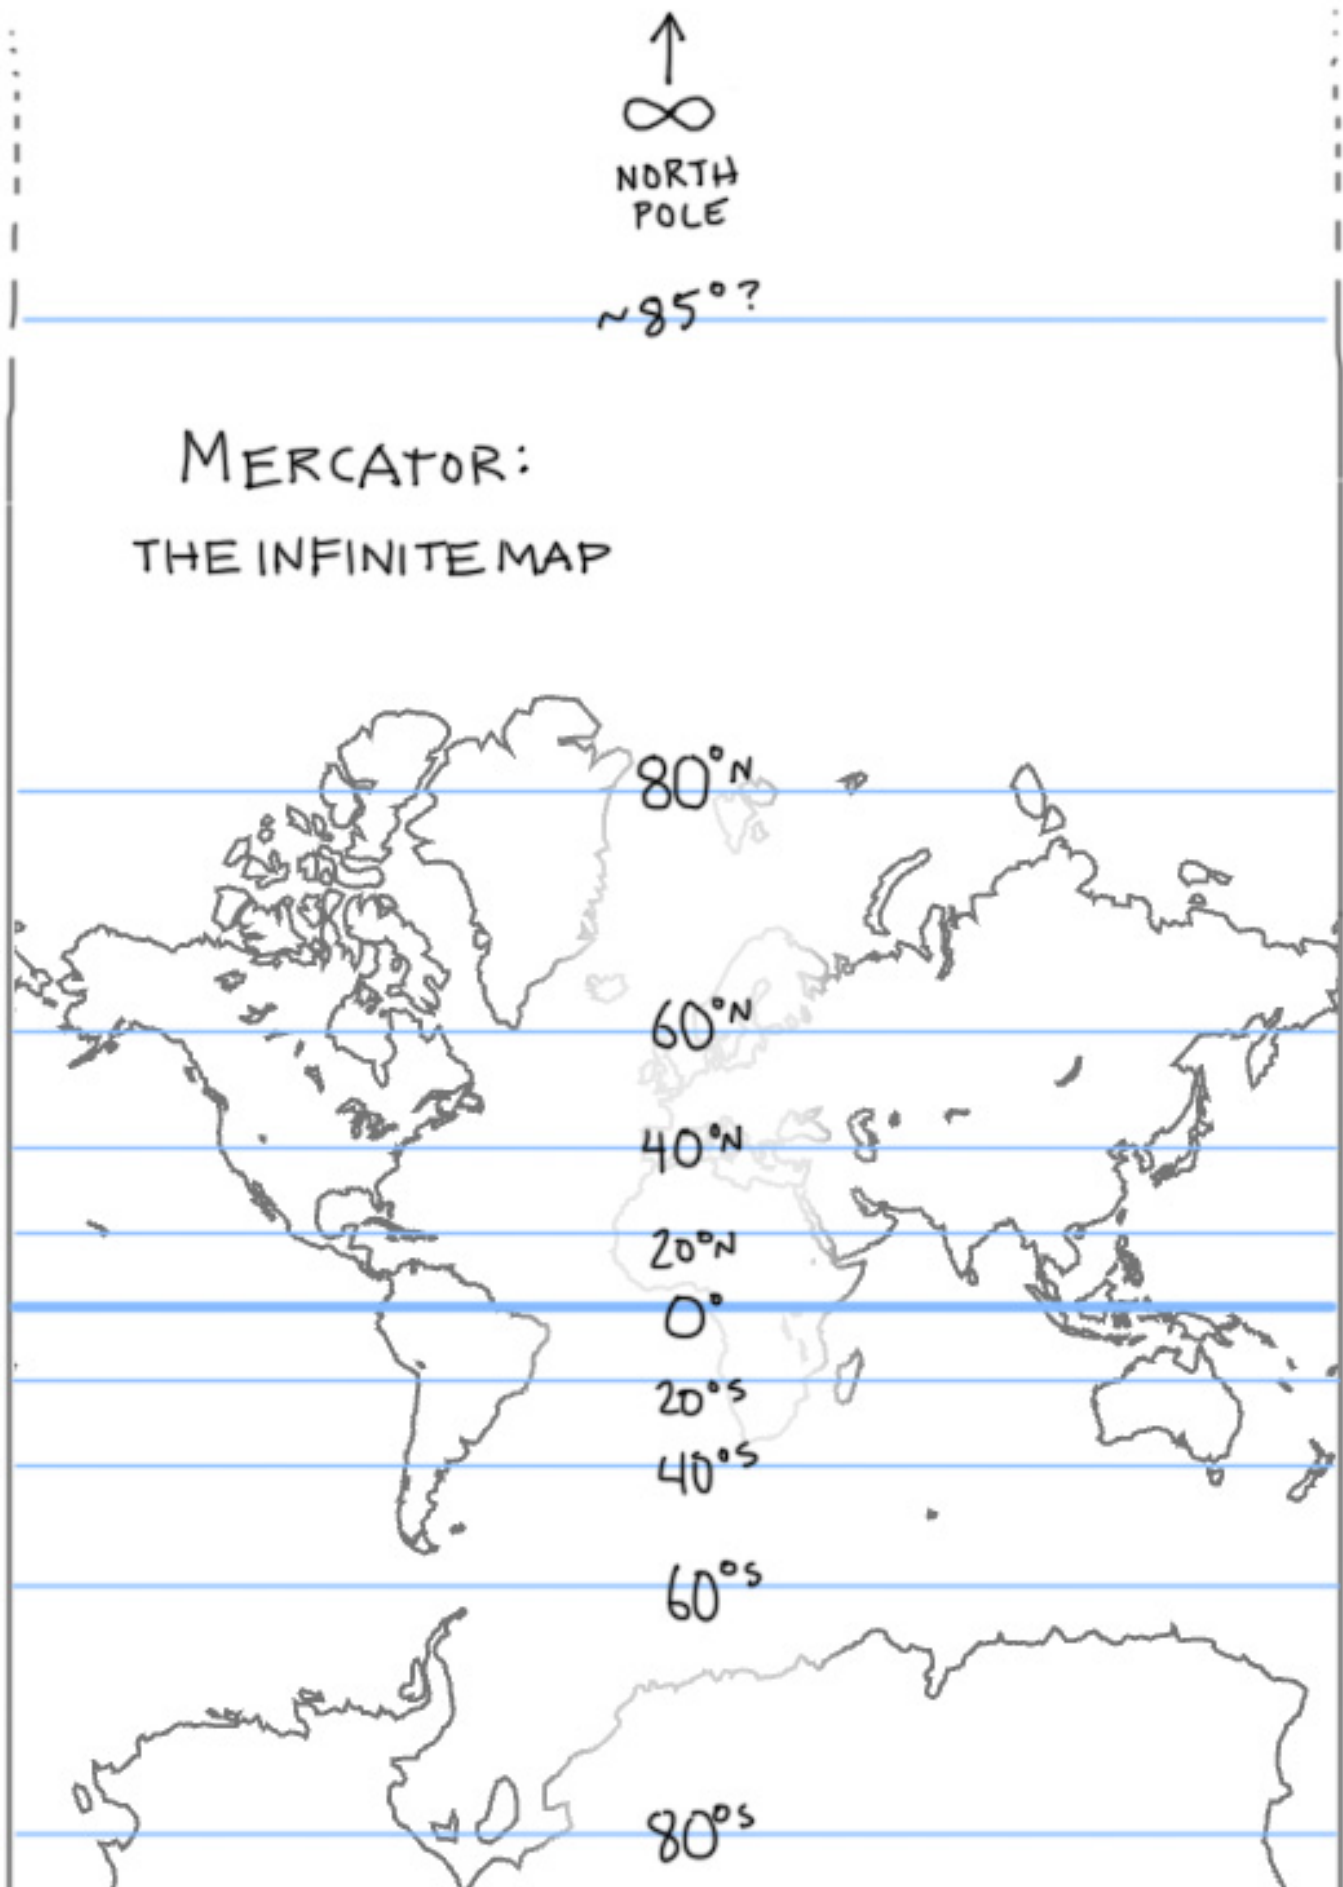 ∞
NORTH
POLE
~85°?
MERCATOR:
THE INFINITE MAP
80°N
60°N
40°N
20°N
0°
20°S
40°S
60°S
80°S